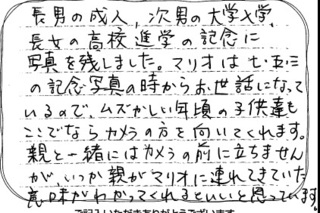 長男の成人、次男の大学入学、
長女の高校進学の記念に
写真を残しました。マリオは七・五・三
の記念写真の時からお世話になって
いるので、ムズかしい年頃の子供達も
ここでならカメラの方を向いてくれます。
親と一緒にはカメラの前に立ちません
が、いつか親がマリオに連れてきていた
意味がわかってくれるといいと思っています。
ご記入いただきありがとうございます